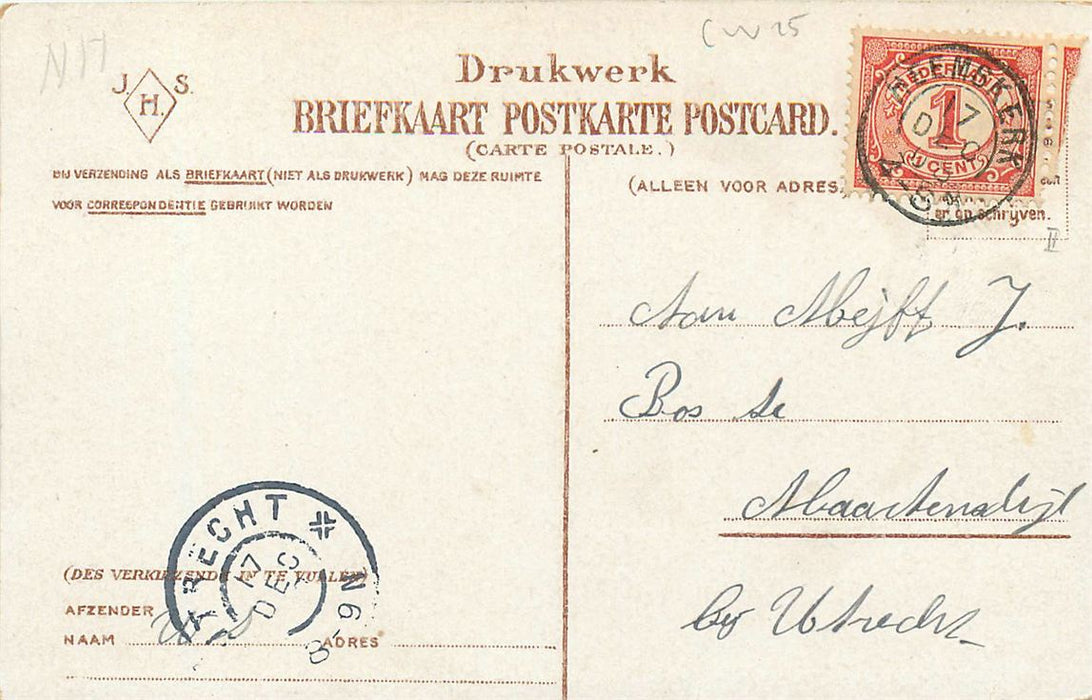 CW 25
NH
J. H. S.
Drukwerk
BRIEFKAART POSTKARTE POSTCARD.
(CARTE POSTALE.)
BIJ VERZENDING ALS BRIEFKAART (NIET ALS DRUKWERK) MAG DEZE RUIMTE
VOOR CORRESPONDENTIE GEBRUIKT WORDEN
(ALLEEN VOOR ADRES.
NEDERLAND
1
CENT
HEEMSKERK
17 DEC
en op schrijven.
II
Aan Mejff J.
Bos te
Maartensdijk
by Utrecht
UTRECHT
17 DEC
8-9 N
(DES VERKIEZENDE IN TE VULLEN)
AFZENDER
NAAM ADRES